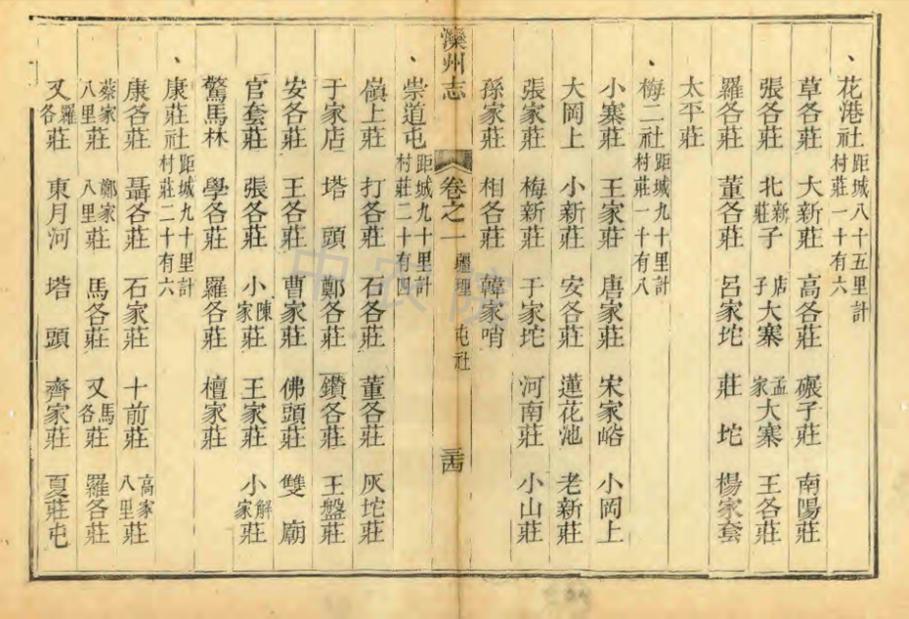 花港社 距城八十五里計村莊一十有六
草各莊 大新莊 高各莊 碾子莊 南陽莊
張各莊 北新莊子 店子大寨 孟家大寨 王各莊
羅各莊 董各莊 呂家坨 莊坨 楊家套
太平莊
梅二社 距城九十里計村莊一十有八
小寨莊 王家莊 唐家莊 宋家峪 小岡上
大岡上 小新莊 安各莊 蓮花池 老新莊
張家莊 梅新莊 于家坨 河南莊 小山莊
孫家莊 相各莊 韓家哨
灤州志 卷之一 疆理 屯社 三十四
崇道屯 距城九十里計村莊二十有四
嶺上莊 打各莊 石各莊 董各莊 灰坨莊
于家店 塔頭 鄭各莊 鑽各莊 王盤莊
安各莊 王各莊 曹家莊 佛頭莊 雙廟
官套莊 張各莊 小陳家莊 王家莊 小解家莊
驚馬林 學各莊 羅各莊 檀家莊
康莊社 距城九十里計村莊二十有六
康各莊 聶各莊 石家莊 十前莊 高家八里莊
蔡家八里莊 鄭家八里莊 馬各莊 又馬各莊 羅各莊
又羅各莊 東月河 塔頭 齊家莊 夏莊屯